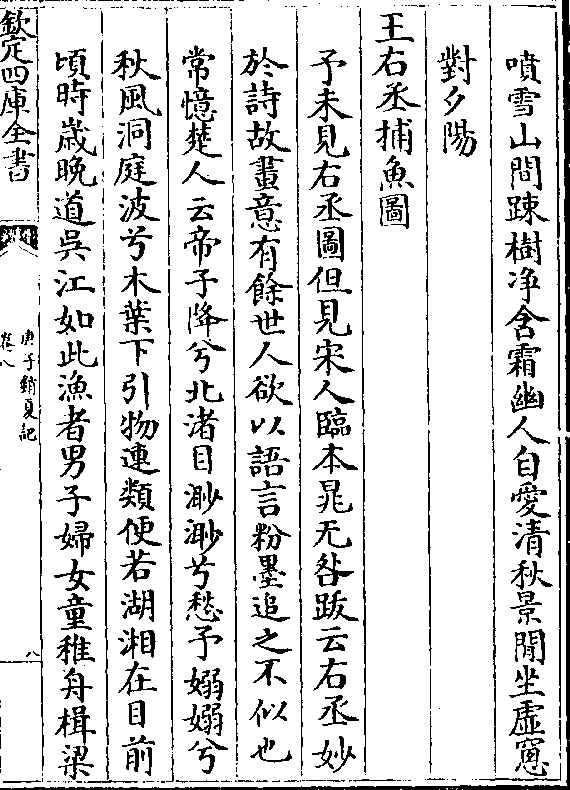 噴雪山間踈樹净含霜幽人自愛清秋景閒坐虛窻
對夕陽
王右丞捕魚圖
予未見右丞圖但見宋人臨本晁无咎跋云右丞妙
於詩故畫意有餘世人欲以語言粉墨追之不似也
常憶楚人云帝子降兮北渚目渺渺兮愁予嫋嫋兮
秋風洞庭波兮木葉下引物連類便若湖湘在目前
頃時歲晚道吳江如此漁者男子婦女童稚舟楫梁
欽定四庫全書
庚子銷夏記
卷八
八